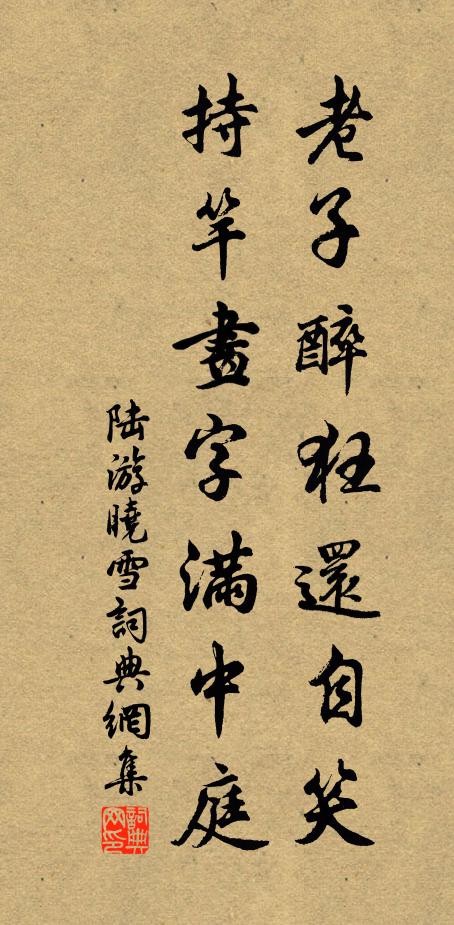 老子醉狂還自笑
持竿畫字滿中庭
陸游曉雪詞典網集
詞典网印